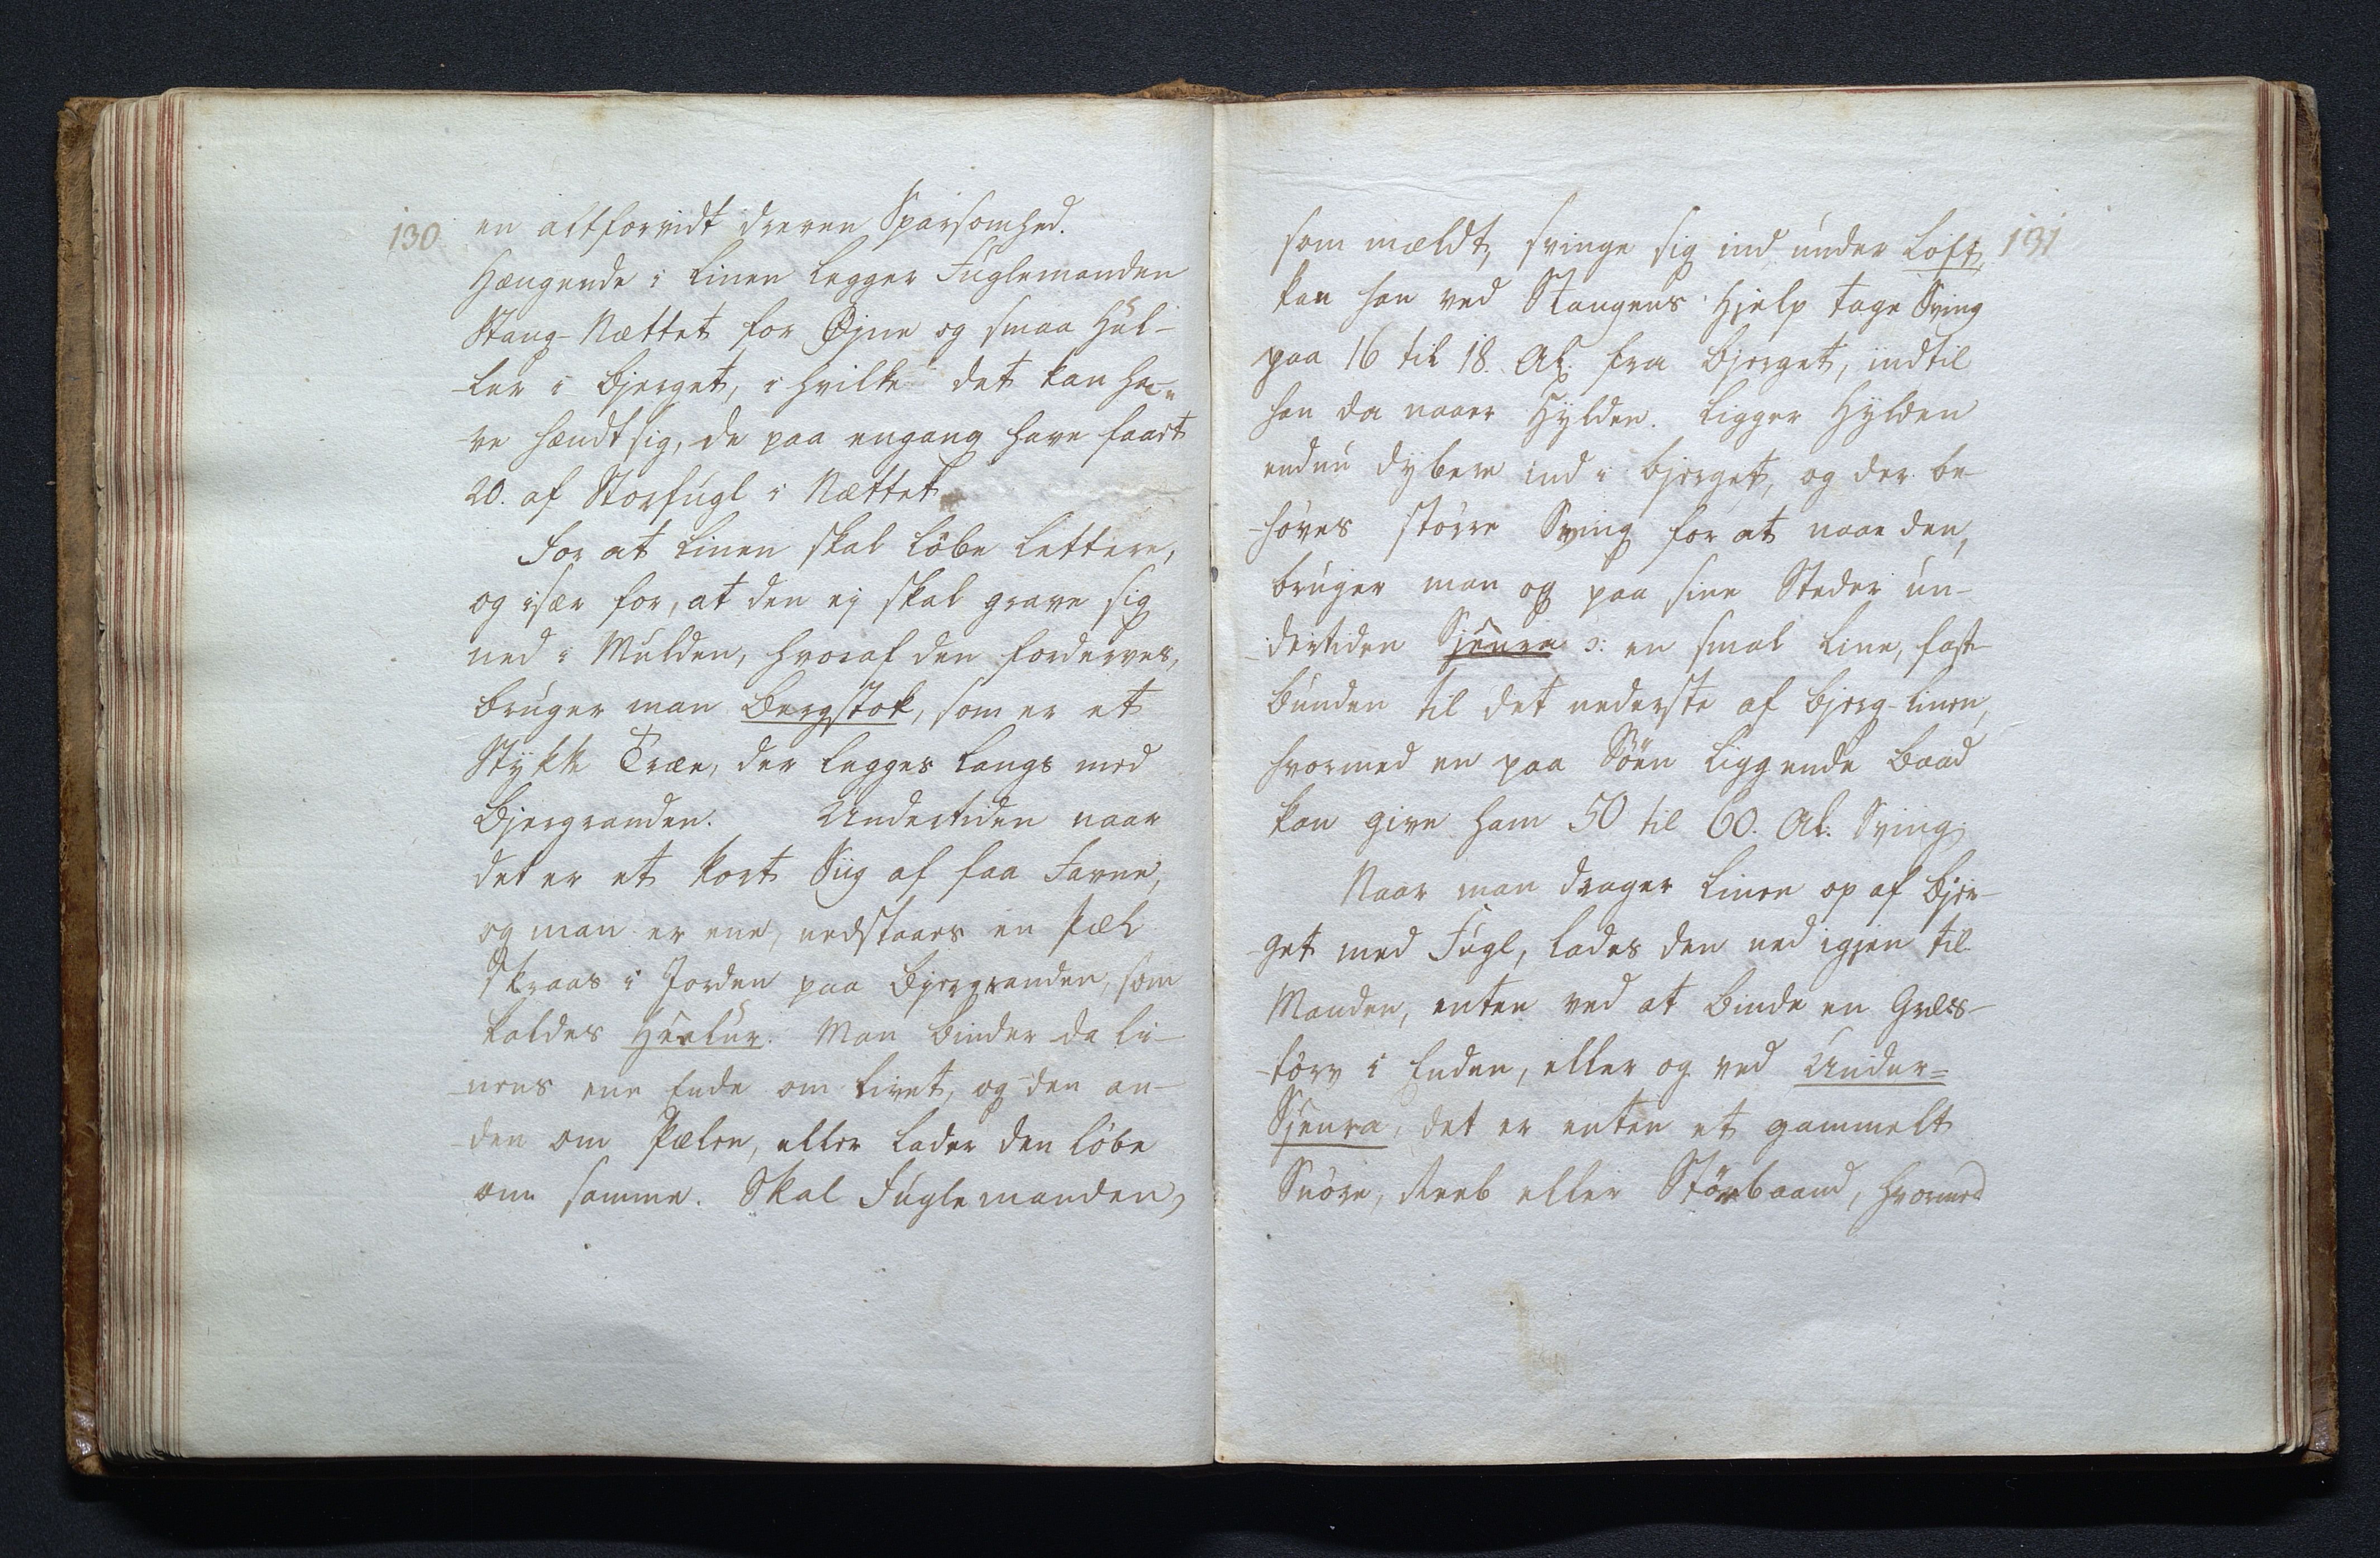 130
en altforvidt dreven Sparsomhed.
Hængende i Linen legger Fuglemanden
Stang-Nættet for Øjne og smaa Hul-
-ler i Bjerget, i hvilke det kan ha-
ve hændt sig, de paa engang have faaet
20. af Storfugl i Nættet
For at Linen skal løbe lettere,
og især for, at den ej skal grave sig
ned i Mulden, hvoraf den forderves,
bruger man Bergstok, som er et
Stykke Træe, der legges langs med
Bjergranden. Undertiden naar
det er et kort Siig af faa Favne,
og man er ene, nedslaaes en Pæl
skraas i Jorden paa Bjergranden, som
kaldes Healur. Man binder da Li-
-nens ene Ende om Livet, og den an-
-den om Pælen, eller lader den løbe
om samme. Skal Fuglemanden,
131
som mældt, svinge sig ind under Loft,
kan han ved Stangens Hjelp tage Sving
paa 16 til 18. Al. fra Bjerget, indtil
han da naaer Hylden. Ligger Hylden
endnu dybere ind i Bjerget, og der be-
-høves større Sving for at naae den,
bruger man og paa sine Steder un-
-dertiden Sjeura ɔ: en smal Line, fast
bunden til det nederste af Bjerg-Linen,
hvormed en paa Søen liggende Baad
kan give ham 50 til 60. Al. Sving.
Naar man drager Linen op af Bjer-
-get med Fugl, lades den ned igjen til
Manden, enten ved at binde en Græs-
-tørv i Enden, eller og ved Under=
Sjeura, det er enten et gammelt
Snøre, Reeb eller Størbaand, hvormed